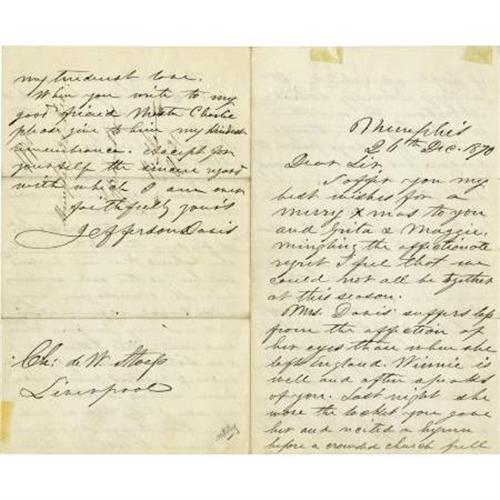 Memphis
26th Dec. 1870
Dear Sir
I offer you my
best wishes for a
merry Xmas to you
and Grita & Maggie,
mingling the affectionate
regret I feel that we
could not all be together
at this season.
Mrs. Davis suffers less
from the affection of
her eyes than when she
left England. Winnie is
well and often speaks
of you. Last night she
wore the locket you gave
her and recited a hymn
before a crowded church full
my tenderest love.
When you write to my
good friend Master Charlie
please give to him my kindest
remembrance. Accept for
yourself the sincere regard
with which I am ever
faithfully yours
Jefferson Davis
Ch: de W.
Liverpool